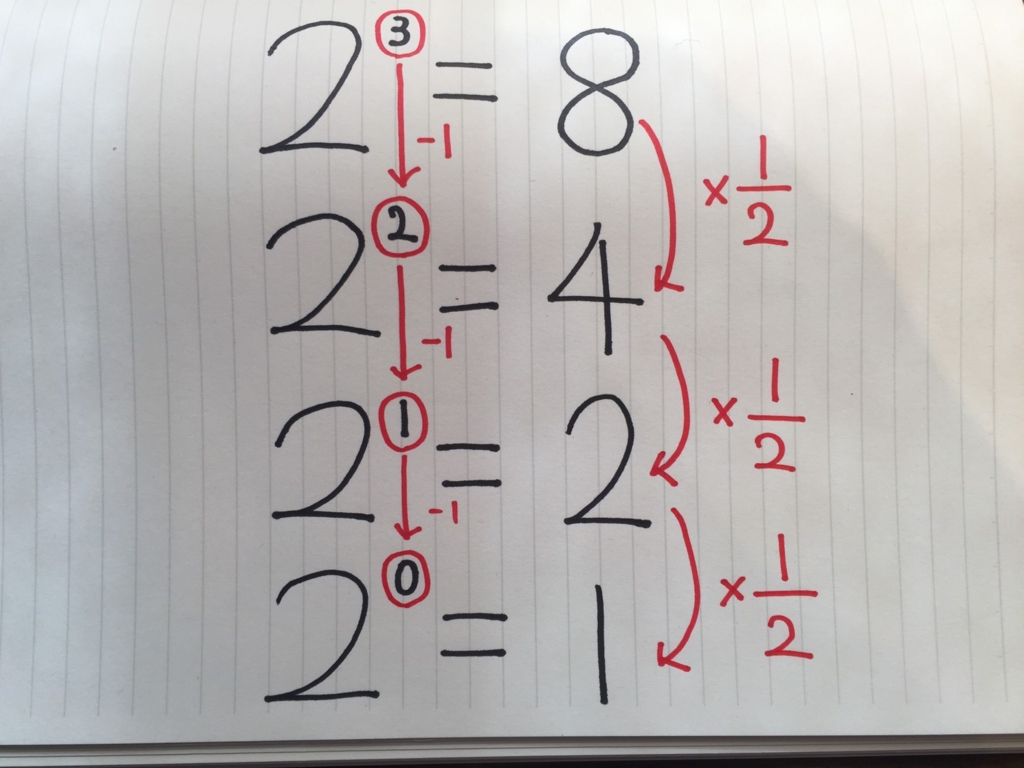 2³ = 8
-1 × 1/2
2² = 4
-1 × 1/2
2¹ = 2
-1 × 1/2
2⁰ = 1